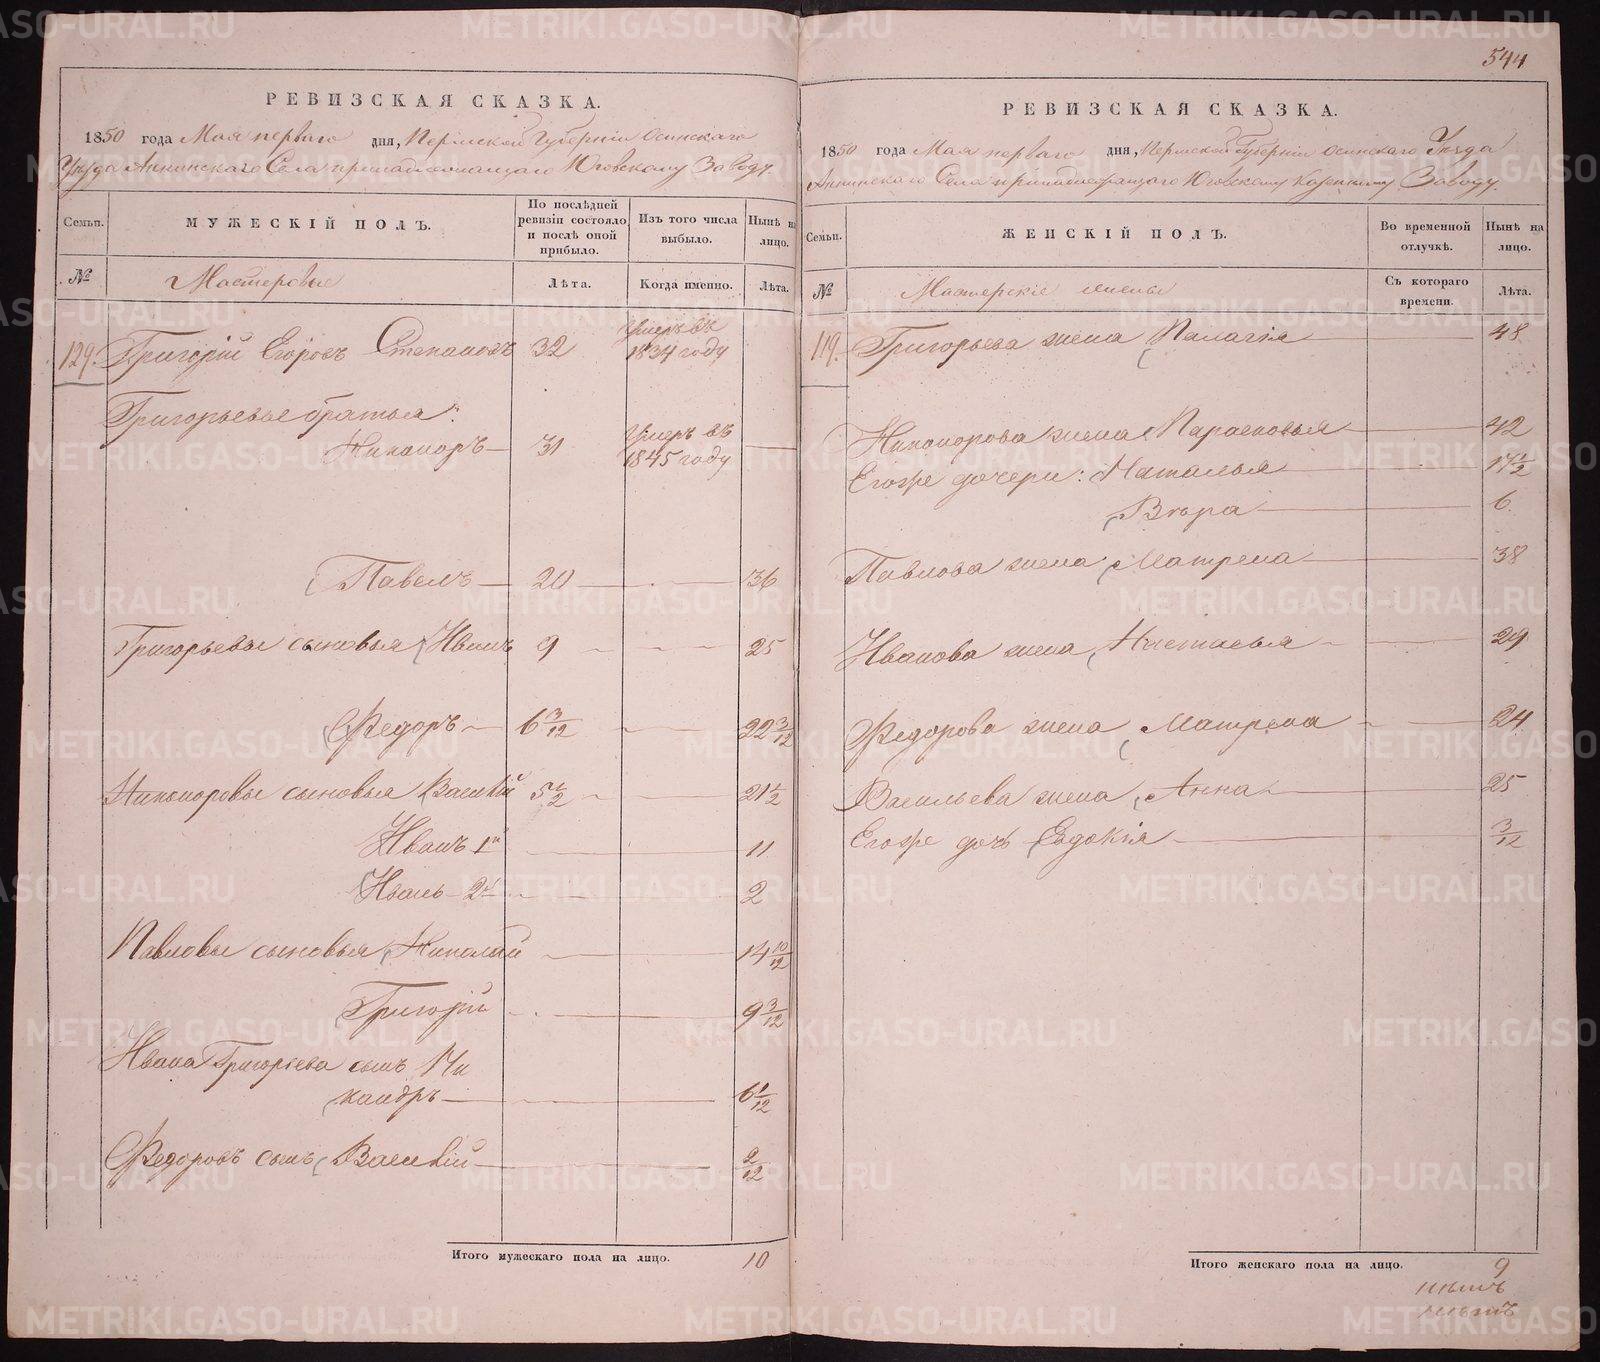 РЕВИЗСКАЯ СКАЗКА.
1850 года Мая перваго дня, Пермской Губерніи Осинскаго
Уѣзда Аннинскаго Села принадлежащаго Юговскому Заводу.
Семьи.
МУЖЕСКІЙ ПОЛЪ.
По послѣдней ревизіи состояло и послѣ оной прибыло.
Изъ того числа выбыло.
Нынѣ на лицо.
№
Мастеровые
Лѣта.
Когда именно.
Лѣта.
129. Григорій Егоровъ Степановъ 32 Умеръ въ 1834 году
Григорьевы братья:
Никаноръ 31 Умеръ въ 1845 году
Павелъ 20 36
Григорьевы сыновья Иванъ 9 25
Федоръ 6 3/12 22 3/12
Никаноровы сыновья Василій 5 1/2 21 1/2
Иванъ 1й 11
Иванъ 2й 2
Павловы сыновья Николай 14 10/12
Григорій 9 3/12
Ивана Григорьева сынъ Ни
кандръ 6 1/12
Федоровъ сынъ Василій 2/12
Итого мужескаго пола на лицо. 10
544
РЕВИЗСКАЯ СКАЗКА.
1850 года Мая перваго дня, Пермской Губерніи Осинскаго Уѣзда
Аннинскаго Села принадлежащаго Юговскому Казенному Заводу.
Семьи.
ЖЕНСКІЙ ПОЛЪ.
Во временной отлучкѣ.
Нынѣ на лицо.
№
Мастерскіе жены
Съ котораго времени.
Лѣта.
119. Григорьева жена Палагія 48
Никонорова жена Парасковья 42
Егоже дочери: Наталья 17 1/2
Вѣра 6
Павлова жена Матрена 38
Иванова жена Настасья 29
Федорова жена Матрена 24
Васильева жена Анна 25
Егоже дочь Евдокія 3/12
Итого женскаго пола на лицо. 9
METRIKI.GASO-URAL.RU